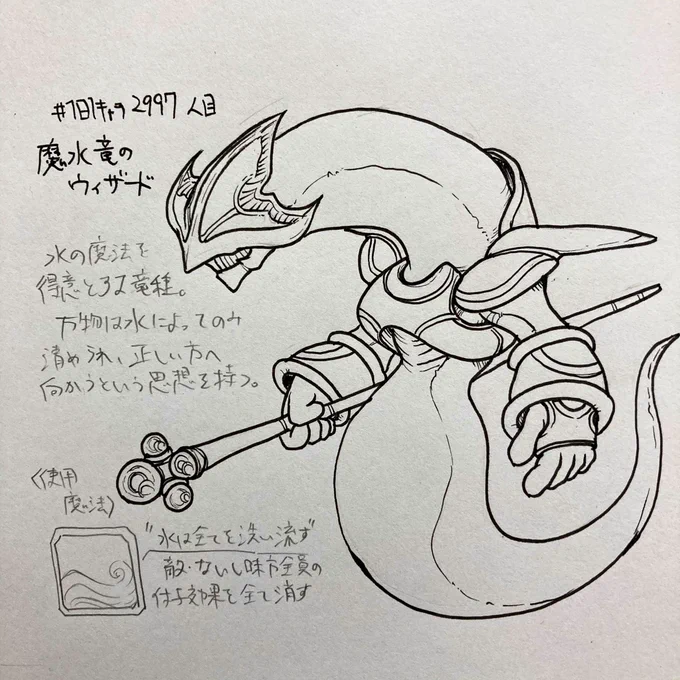 #1日1キャラ 2997人目
魔水竜の
ウィザード
水の魔法を
得意とする竜種。
万物は水によってのみ
清められ、正しい方へ
向かうという思想を持つ。
〈使用
魔法〉
"水は全てを洗い流す"
敵・ないし味方全員の
付与効果を全て消す